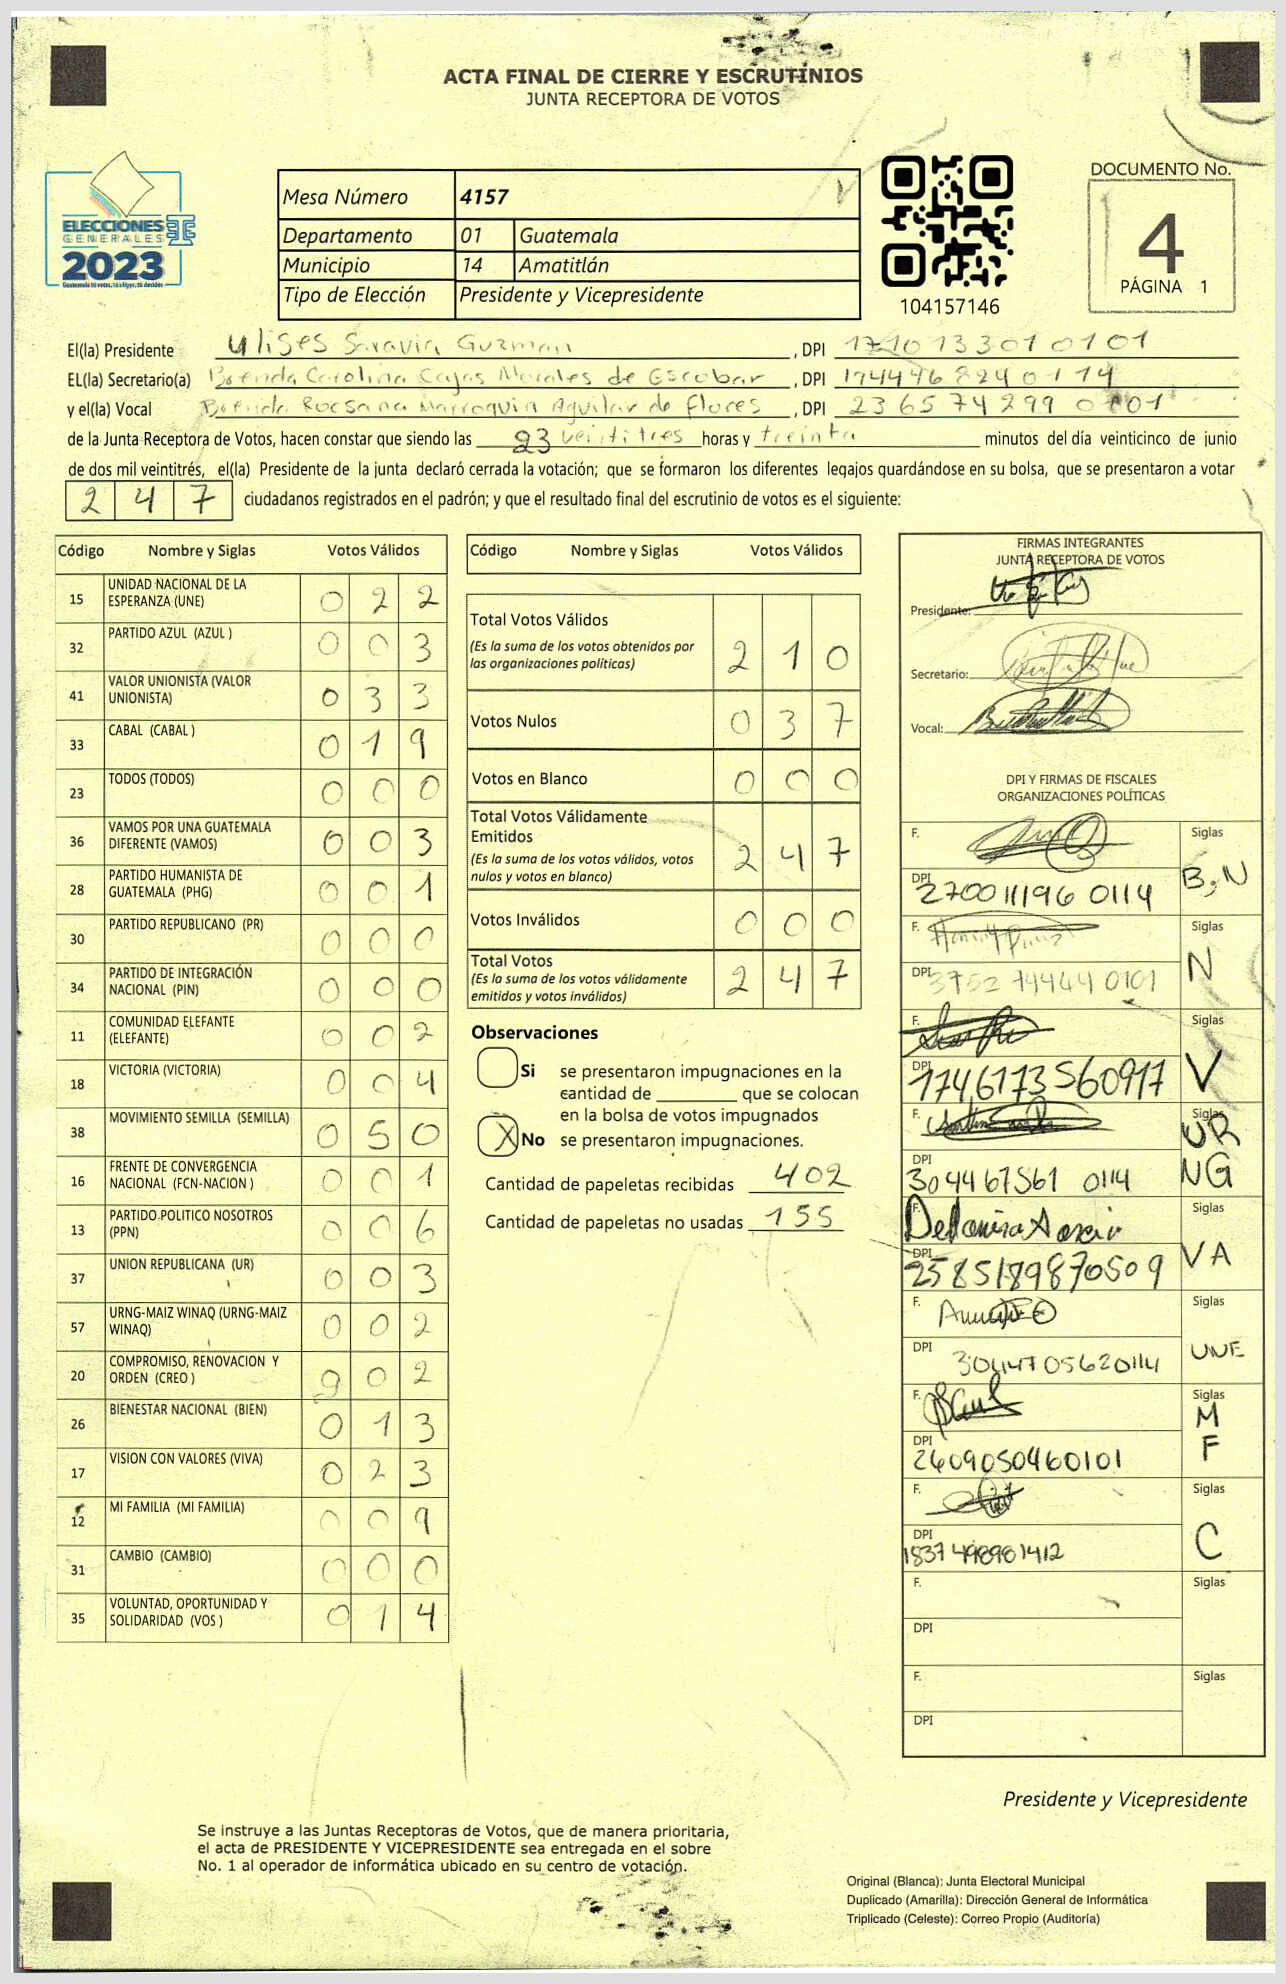 ACTA FINAL DE CIERRE Y ESCRUTINIOS
JUNTA RECEPTORA DE VOTOS
ELECCIONES
GENERALES
2023
Guatemala tú votas, tú eliges, tú decides
Mesa Número 4157
Departamento 01 Guatemala
Municipio 14 Amatitlán
Tipo de Elección Presidente y Vicepresidente
104157146
DOCUMENTO No.
4
PÁGINA 1
El(la) Presidente Ulises Saravia Guzman, DPI 1710133010101
EL(la) Secretario(a) Brenda Carolina Cajas Morales de Escobar, DPI 1744968240114
y el(la) Vocal Brenda Rocsana Marroquin Aguilar de Flores, DPI 2365742990101
de la Junta Receptora de Votos, hacen constar que siendo las 23 veintitres horas y treinta minutos del día veinticinco de junio
de dos mil veintitrés, el(la) Presidente de la junta declaró cerrada la votación; que se formaron los diferentes legajos guardándose en su bolsa, que se presentaron a votar
2 4 7 ciudadanos registrados en el padrón; y que el resultado final del escrutinio de votos es el siguiente:
Código Nombre y Siglas Votos Válidos
15 UNIDAD NACIONAL DE LA ESPERANZA (UNE) 0 2 2
32 PARTIDO AZUL (AZUL ) 0 0 3
41 VALOR UNIONISTA (VALOR UNIONISTA) 0 3 3
33 CABAL (CABAL ) 0 1 9
23 TODOS (TODOS) 0 0 0
36 VAMOS POR UNA GUATEMALA DIFERENTE (VAMOS) 0 0 3
28 PARTIDO HUMANISTA DE GUATEMALA (PHG) 0 0 1
30 PARTIDO REPUBLICANO (PR) 0 0 0
34 PARTIDO DE INTEGRACIÓN NACIONAL (PIN) 0 0 0
11 COMUNIDAD ELEFANTE (ELEFANTE) 0 0 2
18 VICTORIA (VICTORIA) 0 0 4
38 MOVIMIENTO SEMILLA (SEMILLA) 0 5 0
16 FRENTE DE CONVERGENCIA NACIONAL (FCN-NACION ) 0 0 1
13 PARTIDO POLITICO NOSOTROS (PPN) 0 0 6
37 UNION REPUBLICANA (UR) 0 0 3
57 URNG-MAIZ WINAQ (URNG-MAIZ WINAQ) 0 0 2
20 COMPROMISO, RENOVACION Y ORDEN (CREO ) 0 0 2
26 BIENESTAR NACIONAL (BIEN) 0 1 3
17 VISION CON VALORES (VIVA) 0 2 3
12 MI FAMILIA (MI FAMILIA) 0 0 9
31 CAMBIO (CAMBIO) 0 0 0
35 VOLUNTAD, OPORTUNIDAD Y SOLIDARIDAD (VOS ) 0 1 4
Código Nombre y Siglas Votos Válidos
Total Votos Válidos 2 1 0
(Es la suma de los votos obtenidos por
las organizaciones políticas)
Votos Nulos 0 3 7
Votos en Blanco 0 0 0
Total Votos Válidamente
Emitidos 2 4 7
(Es la suma de los votos válidos, votos
nulos y votos en blanco)
Votos Inválidos 0 0 0
Total Votos 2 4 7
(Es la suma de los votos válidamente
emitidos y votos inválidos)
Observaciones
Si se presentaron impugnaciones en la
cantidad de ________ que se colocan
en la bolsa de votos impugnados
X No se presentaron impugnaciones.
Cantidad de papeletas recibidas 402
Cantidad de papeletas no usadas 155
FIRMAS INTEGRANTES
JUNTA RECEPTORA DE VOTOS
Presidente:
Secretario:
Vocal:
DPI Y FIRMAS DE FISCALES
ORGANIZACIONES POLÍTICAS
F. Siglas
DPI 270011196 0114 B.N
F. Siglas
DPI 3752 74464 0101 N
F. Siglas
DPI 1746173560917 V
F. Siglas
DPI 304467561 0114 UR NG
F. Siglas
DPI 2585189870509 VA
F. Siglas
DPI 3044705620114 UNE
F. Siglas
DPI 2609050460101 M F
F. Siglas
DPI 1837498981412 C
F. Siglas
DPI
F. Siglas
DPI
Presidente y Vicepresidente
Se instruye a las Juntas Receptoras de Votos, que de manera prioritaria,
el acta de PRESIDENTE Y VICEPRESIDENTE sea entregada en el sobre
No. 1 al operador de informática ubicado en su centro de votación.
Original (Blanca): Junta Electoral Municipal
Duplicado (Amarilla): Dirección General de Informática
Triplicado (Celeste): Correo Propio (Auditoría)